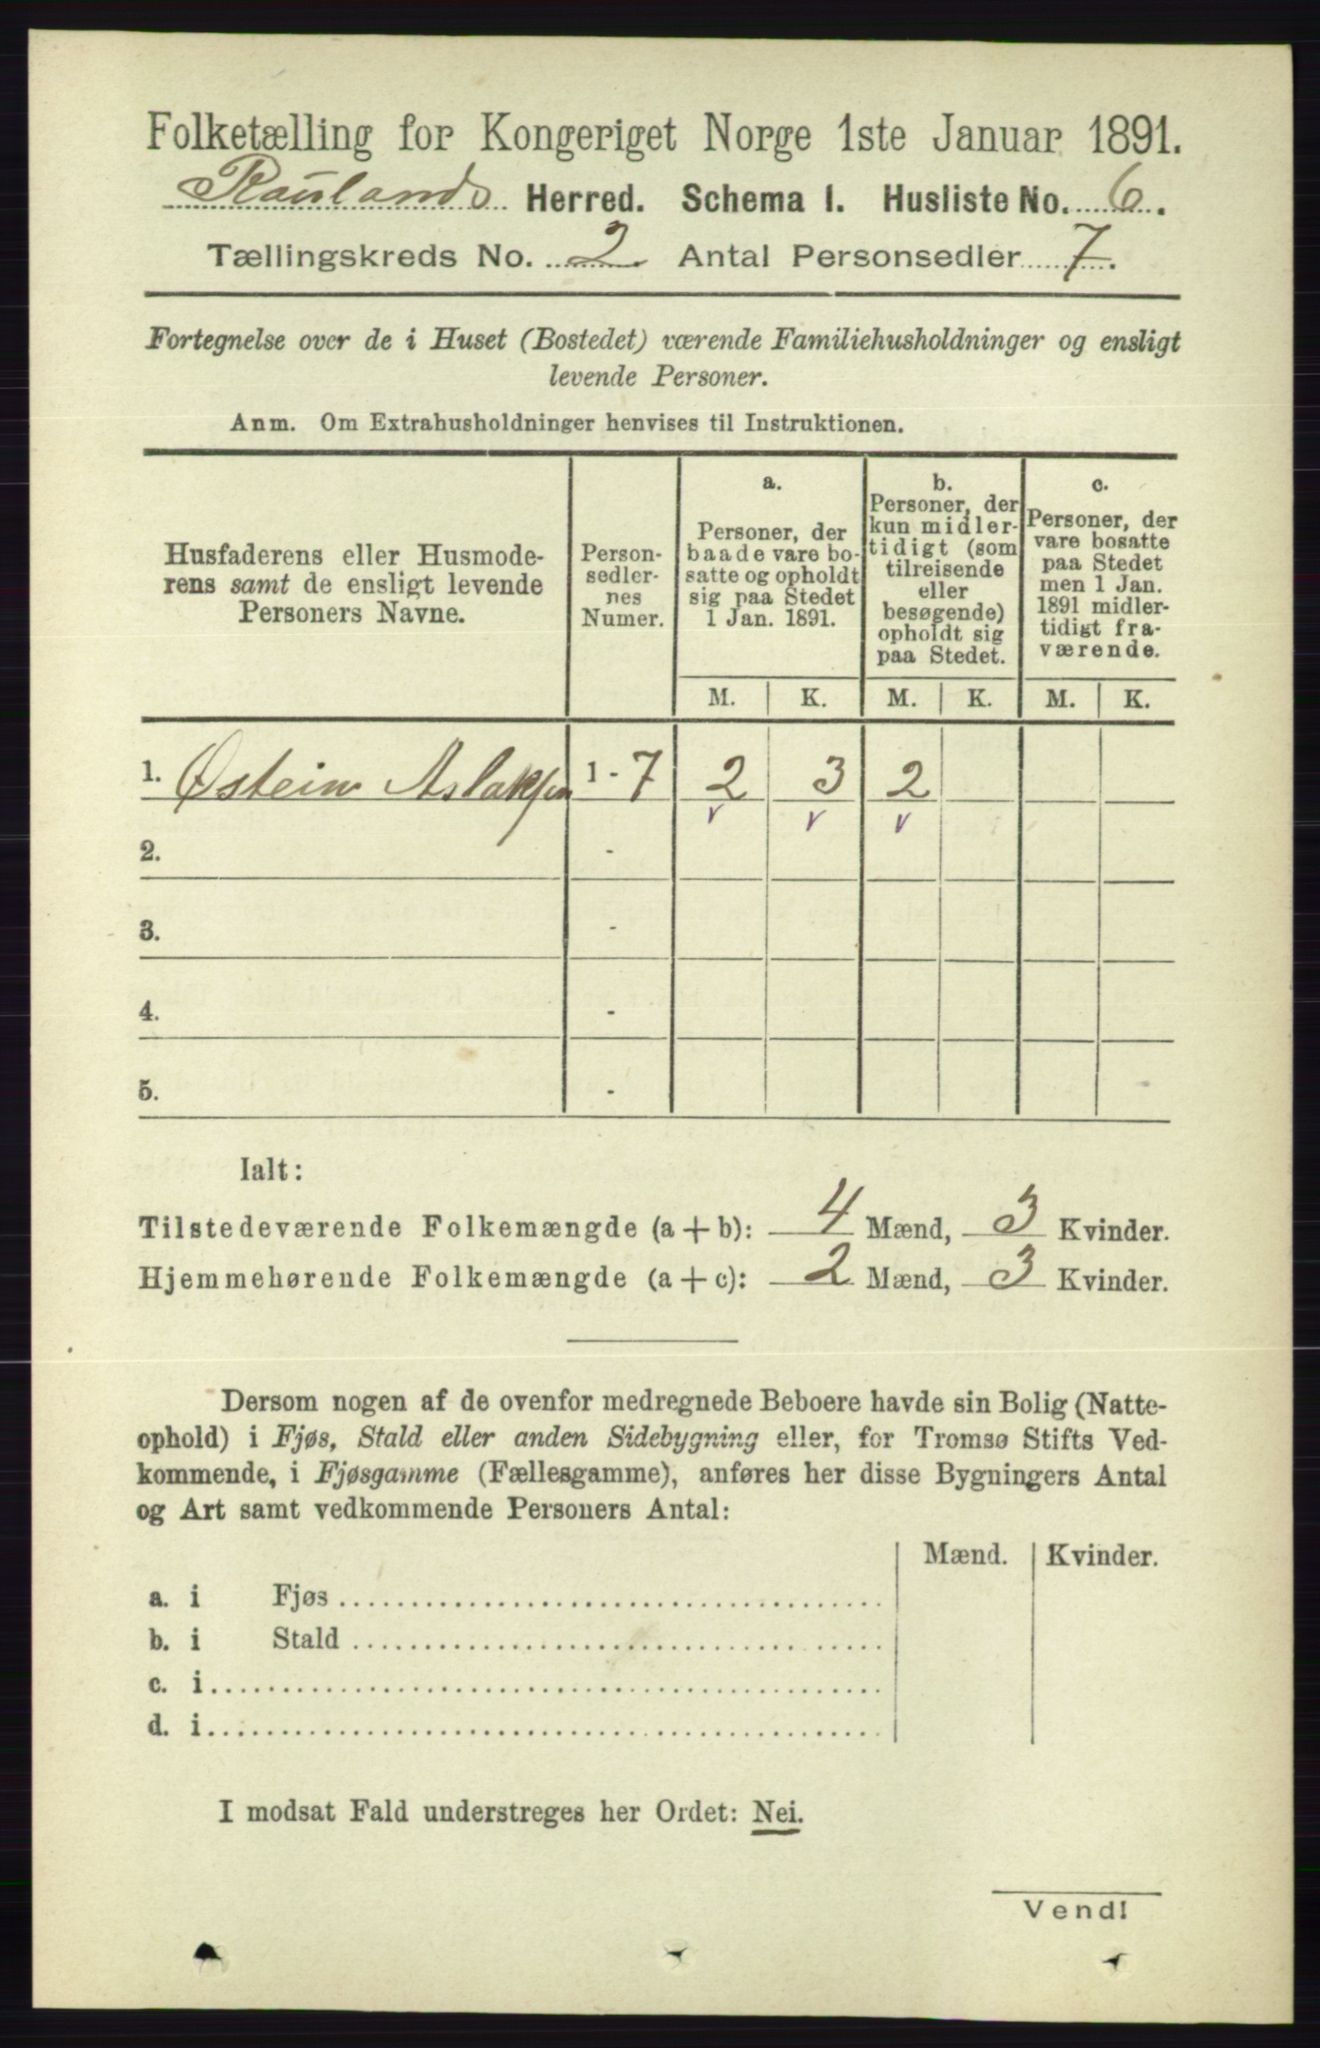 Folketælling for Kongeriget Norge 1ste Januar 1891.
Raulands Herred. Schema 1. Husliste No. 6.
Tællingskreds No. 2 Antal Personsedler 7.
Fortegnelse over de i Huset (Bostedet) værende Familiehusholdninger og ensligt
levende Personer.
Anm. Om Extrahusholdninger henvises til Instruktionen.
Husfaderens eller Husmode-
rens samt de ensligt levende
Personers Navne.
Person-
sedler-
nes
Numer.
a.
Personer, der
baade vare bo-
satte og opholdt
sig paa Stedet
1 Jan. 1891.
b.
Personer, der
kun midler-
tidigt (som
tilreisende
eller
besøgende)
opholdt sig
paa Stedet.
c.
Personer, der
vare bosatte
paa Stedet
men 1 Jan.
1891 midler-
tidigt fra-
værende.
M. K. M. K. M. K.
1. Østein Aslaksen 1 - 7 2 3 2
2. -
3. -
4. -
5. -
Ialt:
Tilstedeværende Folkemængde (a + b): 4 Mænd, 3 Kvinder.
Hjemmehørende Folkemængde (a + c): 2 Mænd, 3 Kvinder.
Dersom nogen af de ovenfor medregnede Beboere havde sin Bolig (Natte-
ophold) i Fjøs, Stald eller anden Sidebygning eller, for Tromsø Stifts Ved-
kommende, i Fjøsgamme (Fællesgamme), anføres her disse Bygningers Antal
og Art samt vedkommende Personers Antal:
Mænd. Kvinder.
a. i Fjøs
b. i Stald
c. i
d. i
I modsat Fald understreges her Ordet: Nei.
Vend!